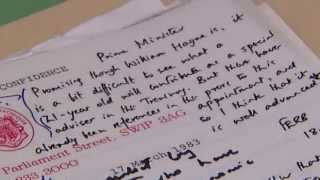 Prime Minister
CONFIDENCE
Promising though William Hague is, it
is a bit difficult to see what a
(21-year old will contribute as a special
adviser in the Treasury. But there have
already been references in the press to this
appointment, and
so I think that it
is well advanced
Parliament Street, SW1P 3AG
233 3000
FERB
18
17 March 1983
the house